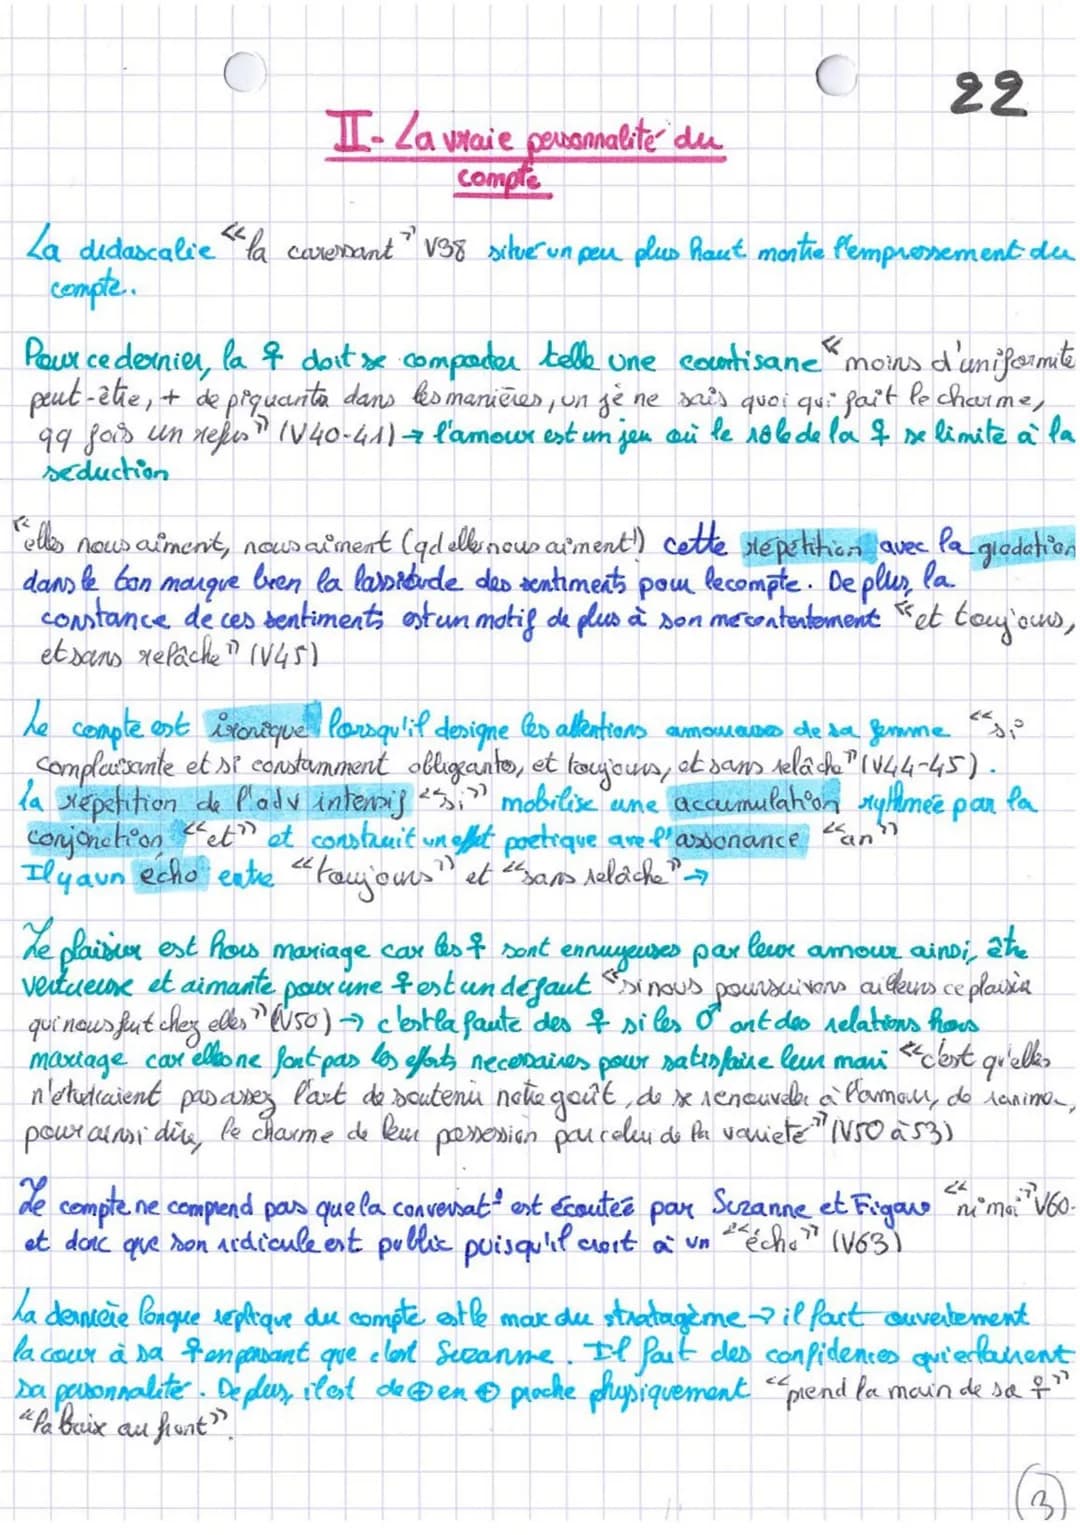 22
II - La vraie personnalité du
compte
La didascalie "la caressant" V38 situé un peu plus haut montre l'empressement du
compte.
Pour ce dernier, la ♀ doit se comporter telle une courtisane "moins d'uniformité
peut-être, + de piquanta dans les manières, un je ne sais quoi qui fait le charme,
qq fois un refus" (V40-41) → l'amour est un jeu où le rôle de la ♀ se limite à la
séduction
"elles nous aiment, nous aiment (qd elles nous aiment!) cette répétition avec la gradation
dans le ton marque bien la lassitude des sentiments pour le compte. De plus, la
constance de ces sentiments est un motif de plus à son mécontentement "et toujours,
et sans relâche" (V45)
Le compte est ironique lorsqu'il designe les attentions amoureuses de sa femme "si
complaisante et si constamment obligeantes, et toujours, et sans relâche" (V44-45).
la répétition de l'adv intensif "si" mobilise une accumulation rythmée par la
conjonction "et" et construit un effet poetique avec l'assonance "an"
Il y a un écho entre "toujours" et "sans relâche" →
Le plaisir est hors mariage car les ♀ sont ennuyeuses par leur amour ainsi, être
vertueuse et aimante pour une ♀ est un défaut "si nous poursuivons ailleurs ce plaisir
qui nous fuit chez elles" (V50) → c'est la faute des ♀ si les ♂ ont des relations hors
mariage car elles ne font pas les efforts nécessaires pour satisfaire leur mari "c'est qu'elles
n'étudiaient pas assez l'art de soutenir notre goût, de se renouveler à l'amour, de ranimer,
pour ainsi dire, le charme de leur possession par celui de la variété" (V50 à 53)
Le compte ne comprend pas que la conversat° est écoutée par Suzanne et Figaro "ni moi" V60-
et donc que son ridicule est public puisqu'il croit à un "écho" (V63)
La dernière longue réplique du compte est le max du stratagème → il fait ouvertement
la cour à sa ♀ en pensant que c'est Suzanne. Il fait des confidences qui éclairent
sa personnalité. De plus, il est de ⊕ en ⊕ proche physiquement "prend la main de sa ♀"
"la baix au front".
3